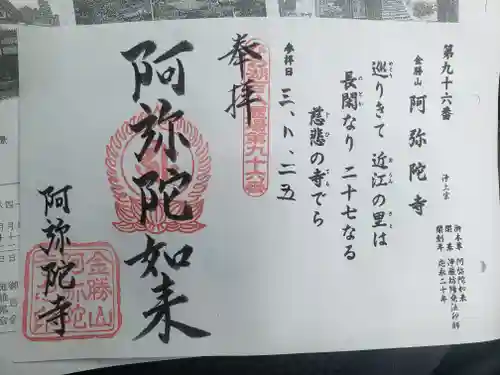 第九十六番
金勝山 阿弥陀寺 浄土宗
御本尊 阿弥陀如来
開基 浄厳坊隆堯法印
開創年 応永二十年
巡りきて 近江の里は
長閑なり 二十七なる
慈悲の寺でら
参拝日 三、八、二五
奉拝
第九十六番
阿弥陀如来
阿弥陀寺
金勝山